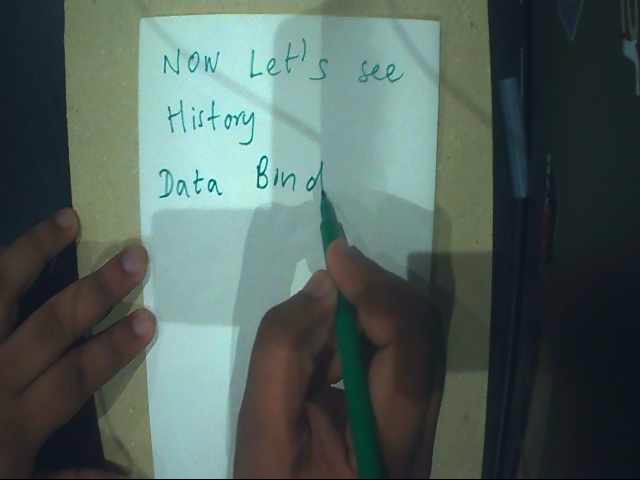 NOW Let's see
History
Data Bind